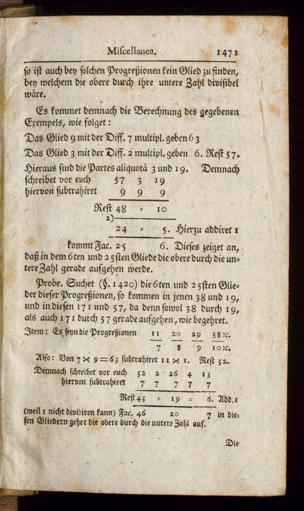 Miscellanea. 1471
so ist auch bey solchen Progreßionen kein Glied zu finden,
bey welchem die obere durch ihre untere Zahl divisibel
wäre.
Es kommet demnach die Berechnung des gegebenen
Exempels, wie folget:
Das Glied 9 mit der Diff. 7 multipl. geben 63
Das Glied 3 mit der Diff. 2 multipl. geben 6. Rest 57.
Hieraus sind die Partes aliquotä 3 und 19. Demnach
schreibet vor euch 57 3 19
hiervon subtrahiret 9 9 9
Rest 48 - 10
2)
24 - 5. Hierzu addiret 1
kommt Fac. 25 6. Dieses zeiget an,
daß in dem 6ten und 25sten Gliede die obere durch die un-
tere Zahl gerade aufgehen werde.
Probe. Suchet (§. 1420) die 6ten und 25sten Glie-
der dieser Progreßionen, so kommen in jenen 38 und 19,
und in diesen 171 und 57, da denn sowol 38 durch 19,
als auch 171 durch 57 gerade aufgehen, wie begehret.
Item: Es seyn die Progreßionen 11 20 29 38 ꝛc.
7 8 9 10 ꝛc.
Also: Von 7 × 9 = 63 subtrahiret 11 × 1. Rest 52.
Demnach schreibet vor euch 52 2 26 4 13
hiervon subtrahiret 7 7 7 7 7
Rest 45 - 19 - 6. Add. 1
(weil 1 nicht dividiren kann) Fac. 46 20 7 in die-
sen Gliedern gehet die obere durch die untere Zahl auf.
Die